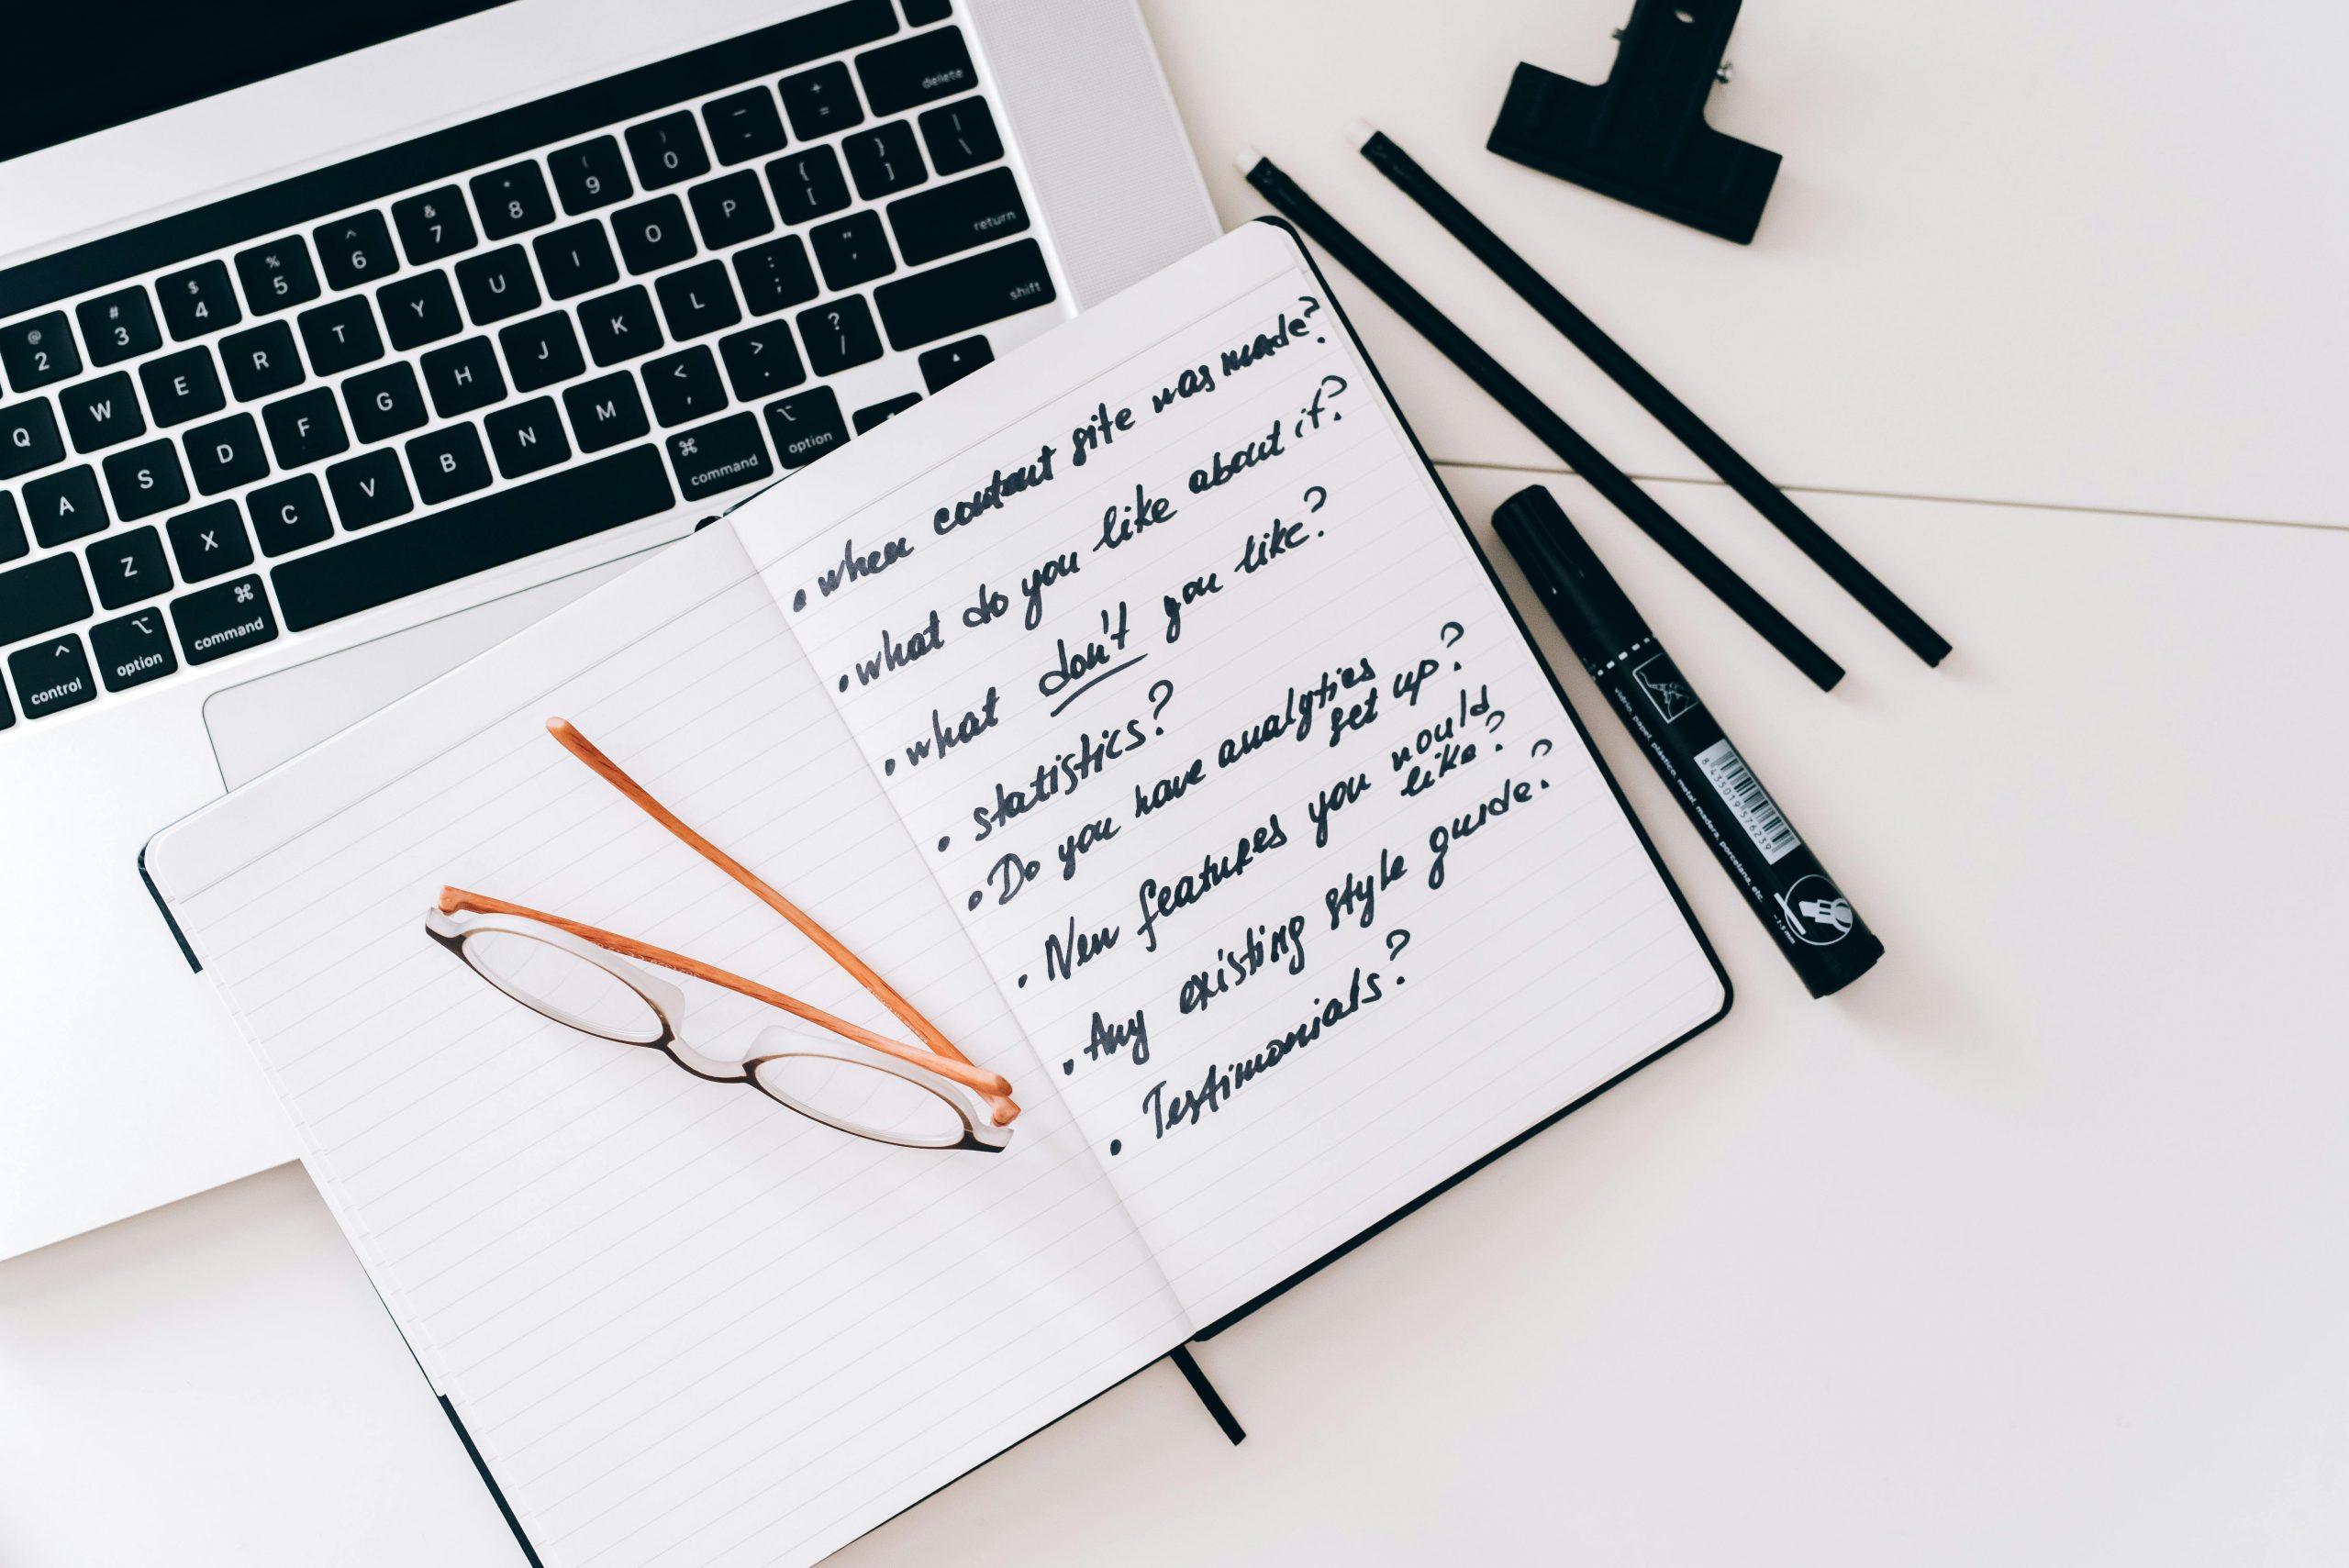 delete
+
=
_
-
)
0
(
9
*
8
&
7
^
6
%
5
$
4
#
3
@
2
|
\
}
]
{
[
P
O
I
U
Y
T
R
E
W
Q
return
"
'
:
;
L
K
J
H
G
F
D
S
A
shift
?
/
>
.
<
,
M
N
B
V
C
X
Z
option
command
command
option
control
• when content site was made?
• what do you like about it?
• what don't you like?
• statistics?
• Do you have analytics
set up?
• New features you would
like?
• Any existing style guide?
• Testimonials?
vidrio, papel, plástico, metal, madera, porcelana, etc.
8435019576259